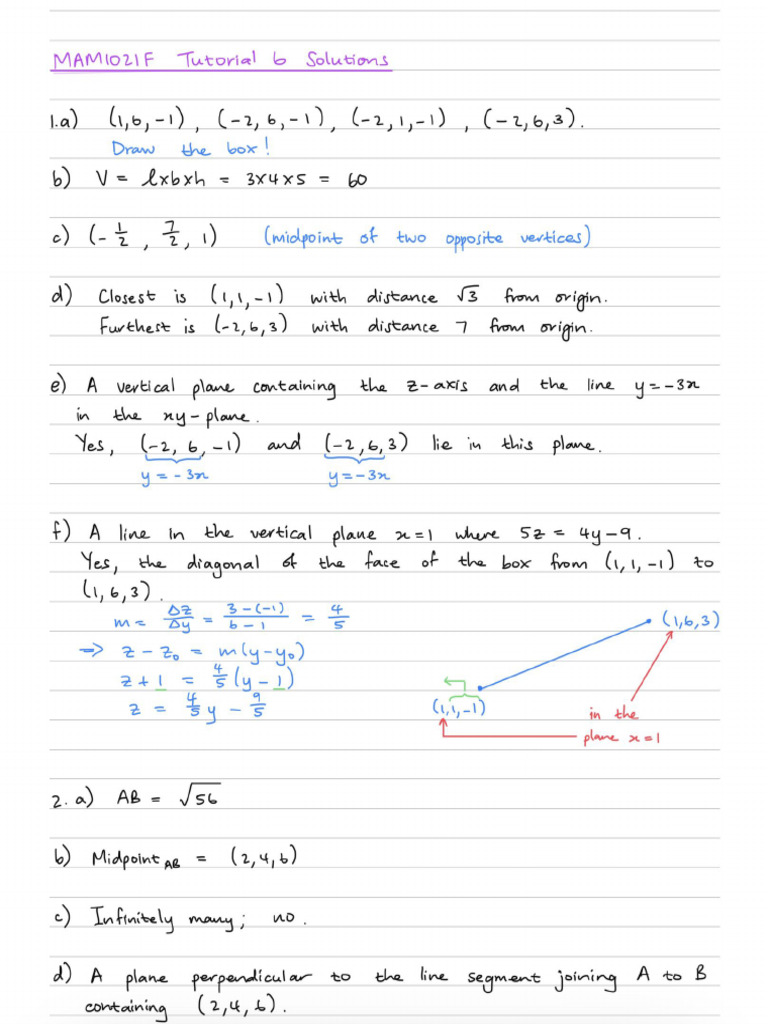 MAM1021F Tutorial 6 Solutions
1.a) (1,6,-1), (-2,6,-1), (-2,1,-1), (-2,6,3).
Draw the box!
b) V = l×b×h = 3×4×5 = 60
c) (-1/2, 7/2, 1) (midpoint of two opposite vertices)
d) Closest is (1,1,-1) with distance √3 from origin.
Furthest is (-2,6,3) with distance 7 from origin.
e) A vertical plane containing the z-axis and the line y=-3x
in the xy-plane.
Yes, (-2, 6,-1) and (-2,6,3) lie in this plane.
y=-3x y=-3x
f) A line in the vertical plane x=1 where 5z = 4y-9.
Yes, the diagonal of the face of the box from (1,1,-1) to
(1,6,3).
m = Δz/Δy = 3-(-1)/6-1 = 4/5
⇒ z-z₀ = m(y-y₀)
z+1 = 4/5(y-1)
z = 4/5y - 9/5
(1,6,3)
(1,1,-1)
in the
plane x=1
2. a) AB = √56
b) Midpoint AB = (2,4,6)
c) Infinitely many; no.
d) A plane perpendicular to the line segment joining A to B
containing (2,4,6).